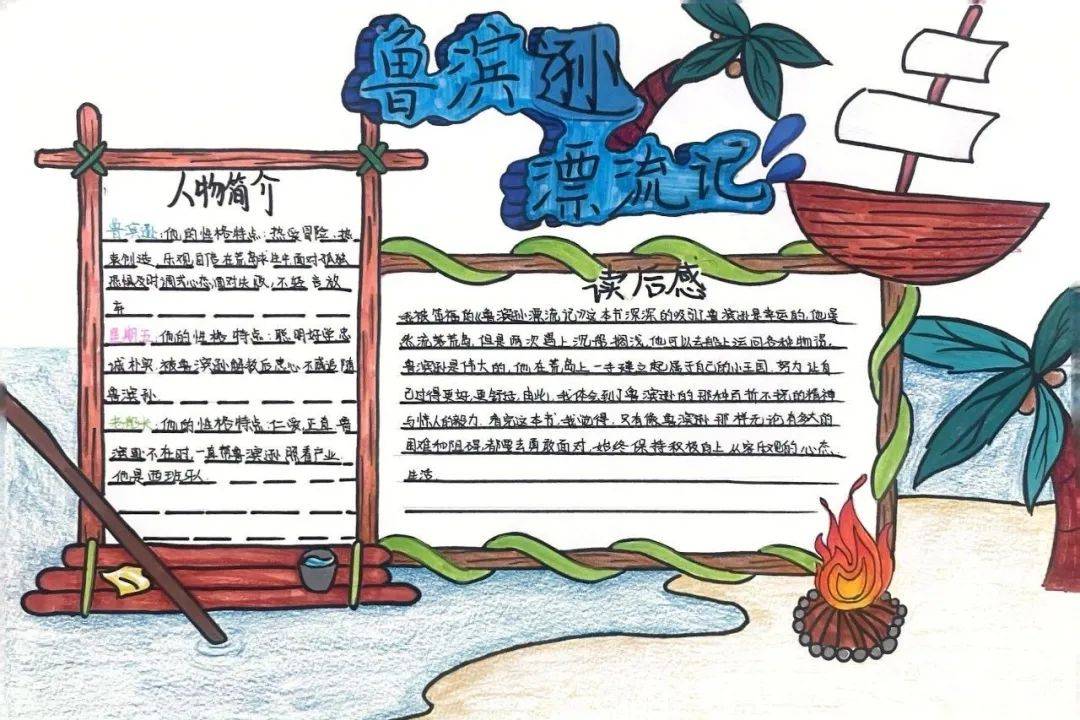 鲁滨逊
漂流记
人物简介
鲁滨逊:他的性格特点:热爱冒险、热
衷创造、乐观自信在荒岛求生中面对孤独
恐惧及时调式心态,面对失败,不轻言放
弃
星期五:他的性格特点:聪明好学忠
诚朴实,被鲁滨逊解救后忠心不离追随
鲁滨孙
老船长:他的性格特点:仁爱,正直,鲁
滨逊不在时一直帮鲁滨逊照看产业
他是西班牙人
读后感
我被笛福的《鲁滨孙漂流记》这本书深深的吸引了鲁滨逊是幸运的,他虽
然流落荒岛,但是两次遇上沉船搁浅,他可以去船上运回各种物资,
鲁滨孙是伟大的,他在荒岛上一手建立起属于自己的小王国,努力让自
己过得更好,更舒适,由此,我体会到了鲁滨孙的那种百折不挠的精神
与惊人的毅力.看完这本书,我觉得,只有像鲁滨孙那样无论有多大的
困难和阻碍都要去勇敢面对,始终保持积极向上从容乐观的心态,
生活.